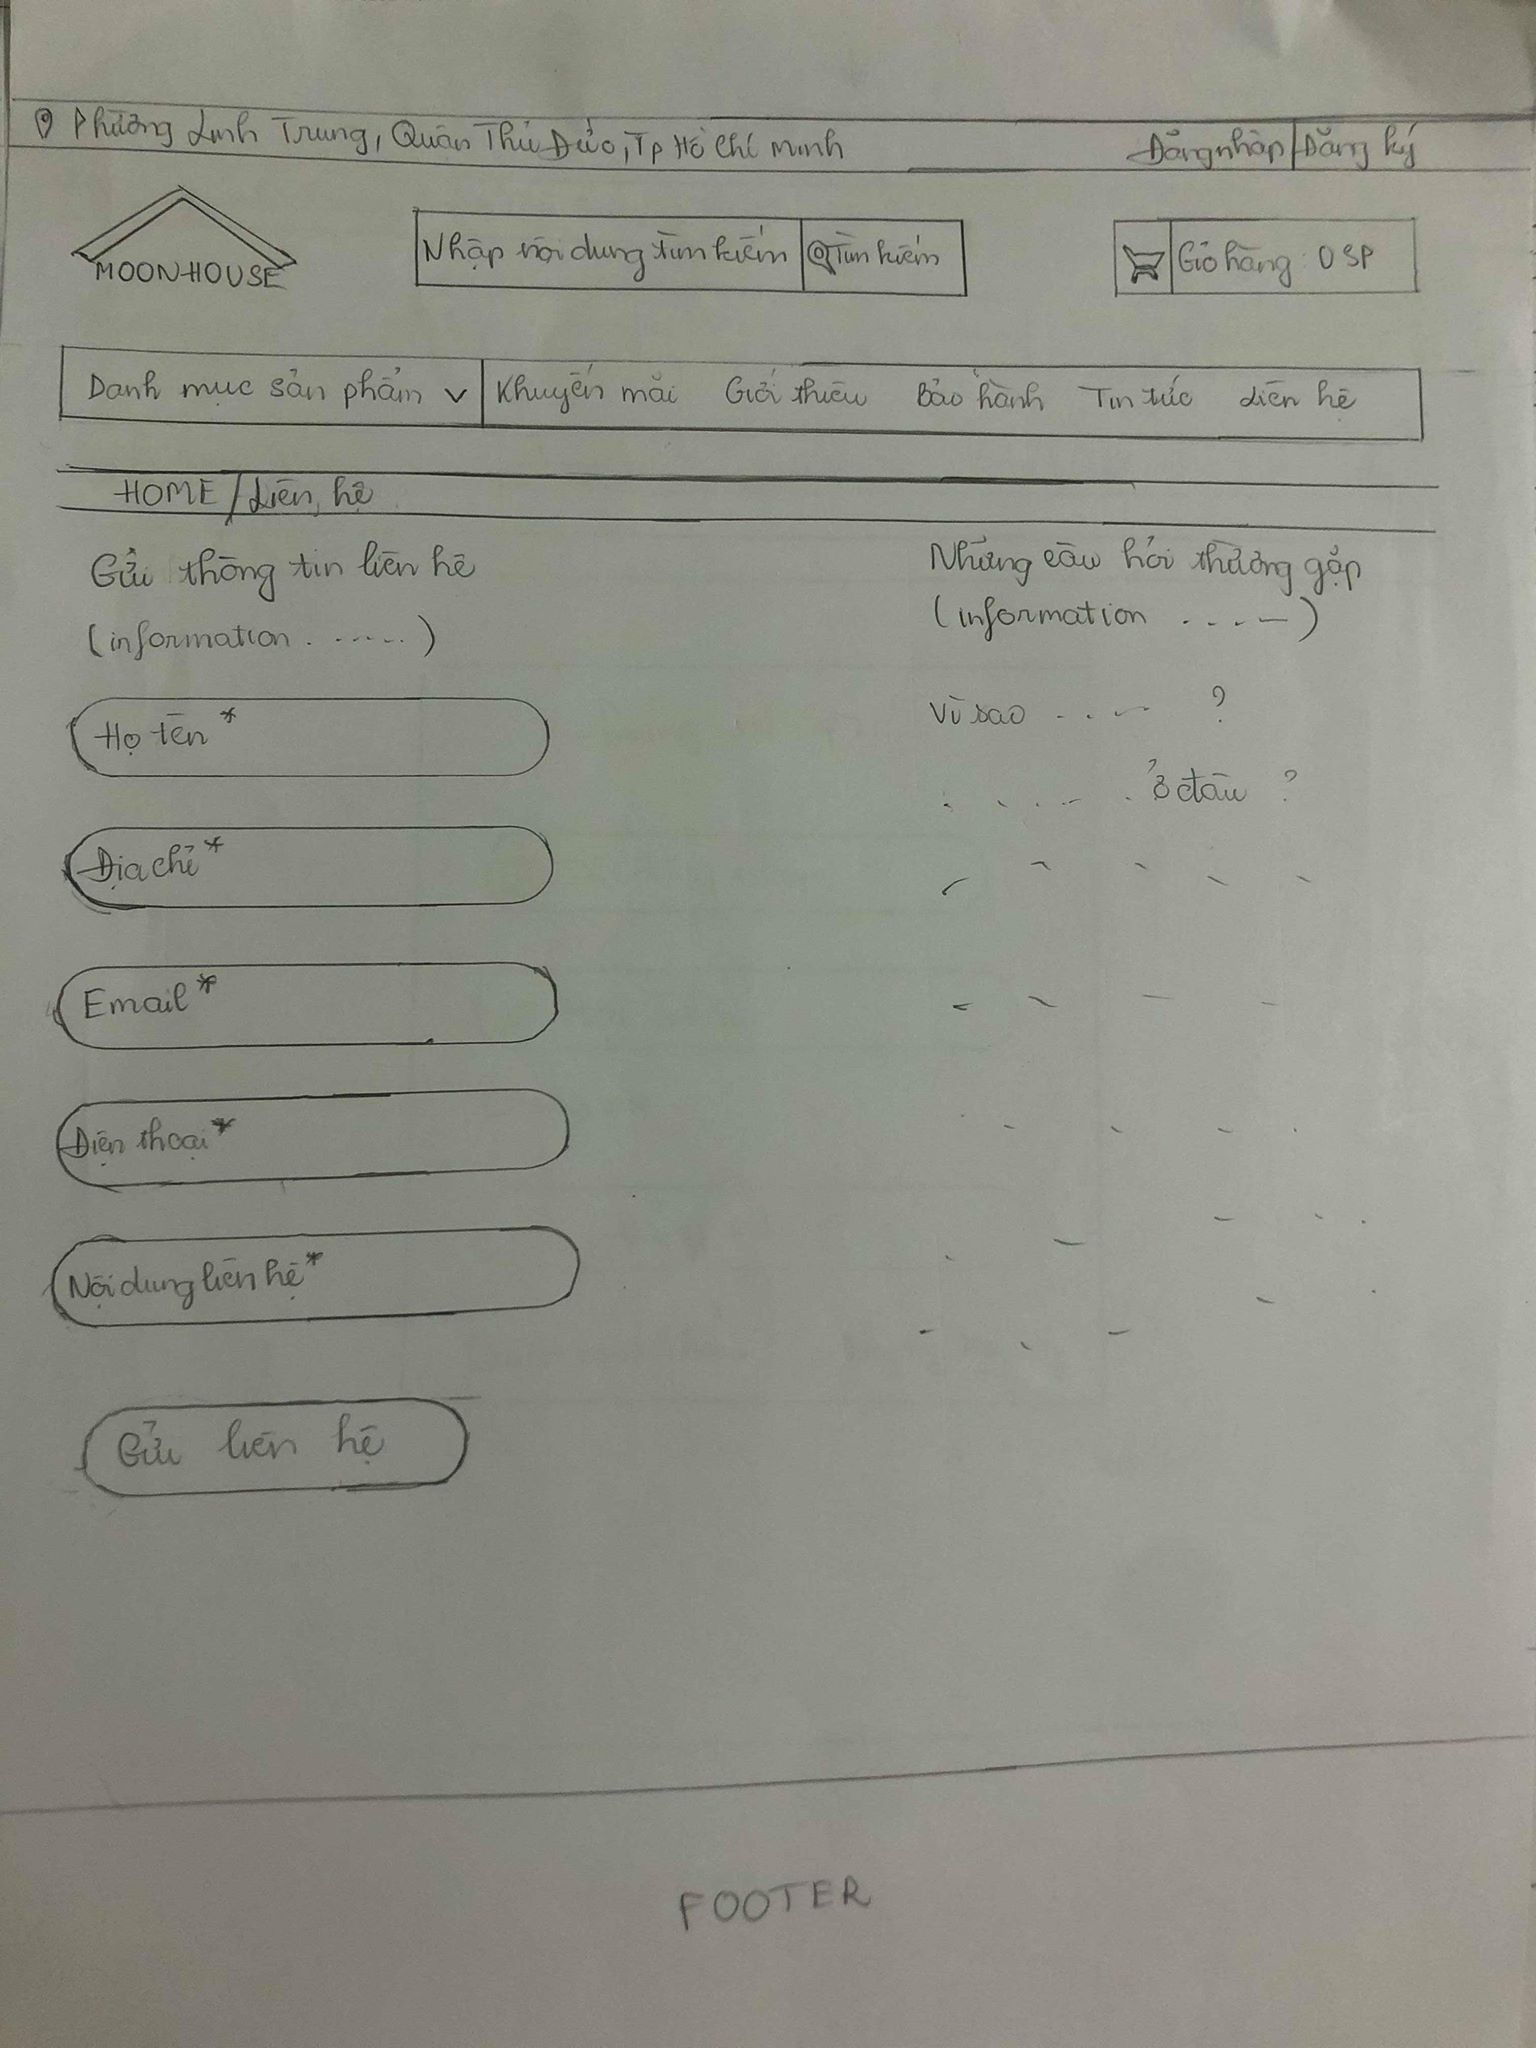 Phường Linh Trung, Quận Thủ Đức, Tp Hồ Chí Minh
Đăng nhập | Đăng ký
MOONHOUSE
Nhập nội dung tìm kiếm
Tìm kiếm
Giỏ hàng: 0 SP
Danh mục sản phẩm
Khuyến mãi Giới thiệu Bảo hành Tin tức Liên hệ
HOME / Liên hệ
Gửi thông tin liên hệ
(information . .....)
Họ tên *
Địa chỉ *
Email *
Điện thoại *
Nội dung liên hệ *
Gửi liên hệ
Những câu hỏi thường gặp
(information ....)
Vì sao .... ?
..... ở đâu ?
FOOTER